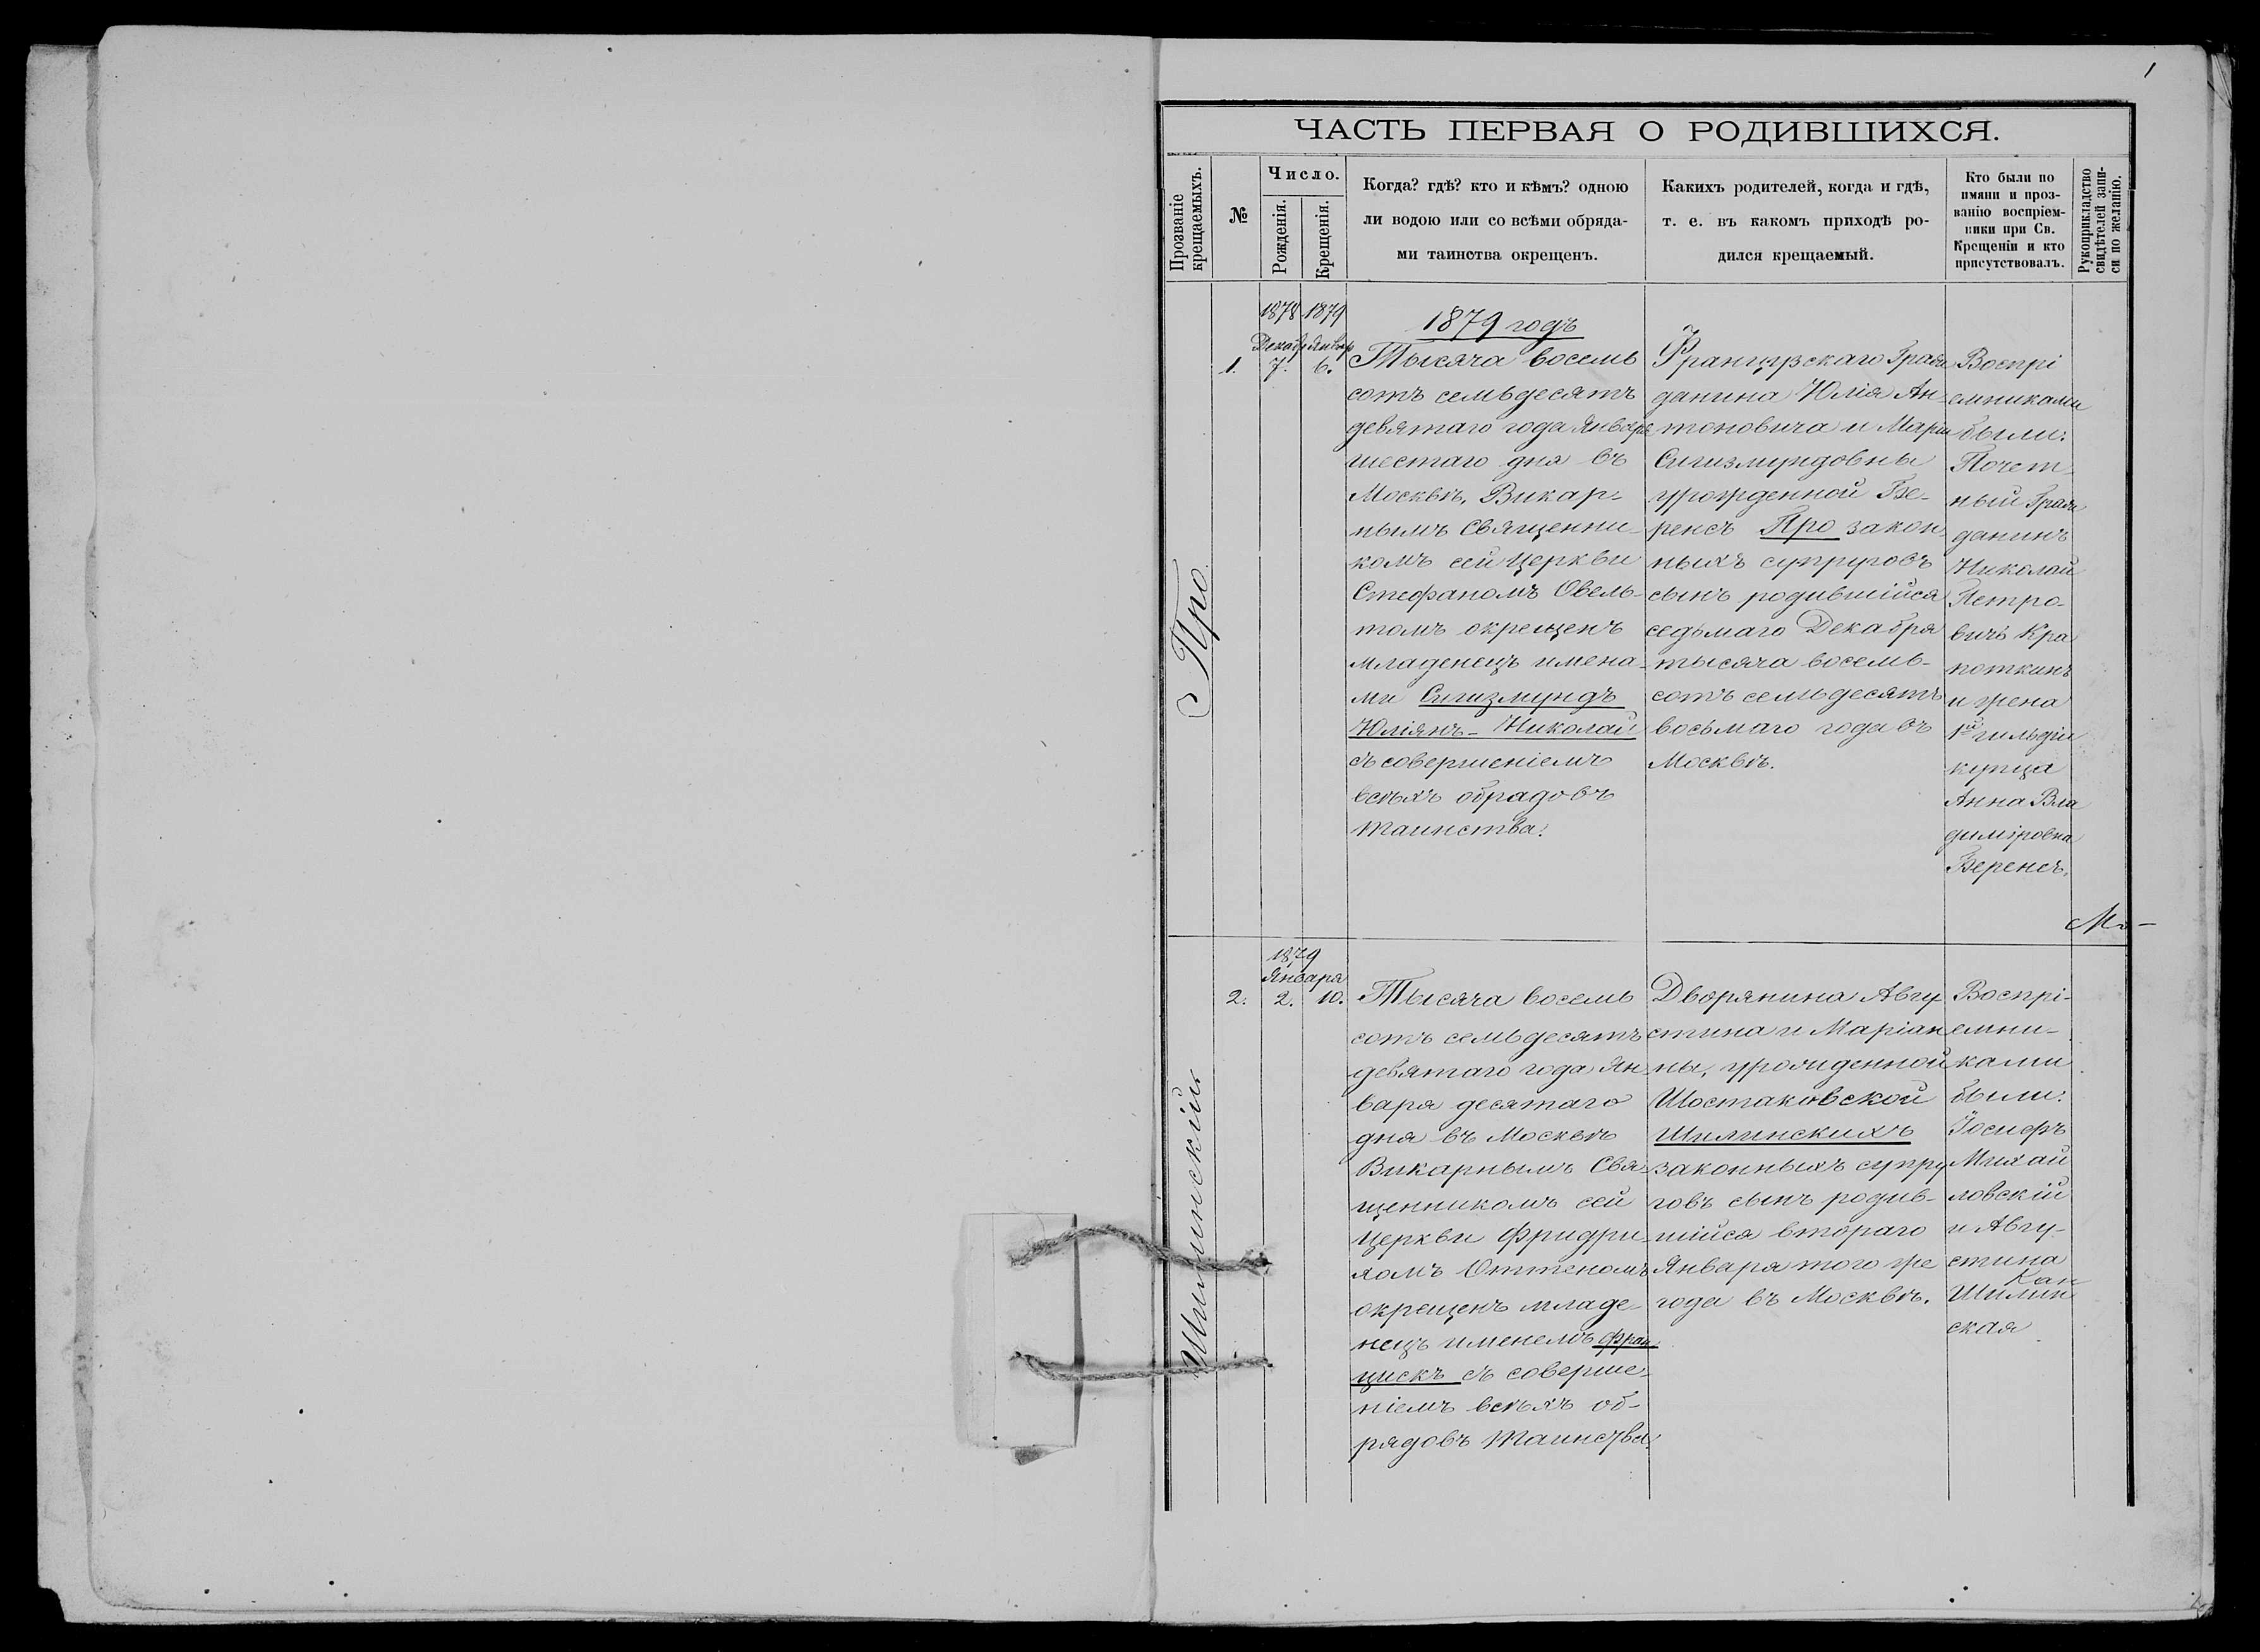 1
ЧАСТЬ ПЕРВАЯ О РОДИВШИХСЯ.
Прозваніе
крещаемыхъ.
№
Число.
Рожденія.
Крещенія.
Когда? гдѣ? кто и кѣмъ? одною
ли водою или со всѣми обряда-
ми таинства окрещенъ.
Какихъ родителей, когда и гдѣ,
т. е. въ какомъ приходѣ ро-
дился крещаемый.
Кто были по
имяни и проз-
ванію воспріем-
ники при Св.
Крещеніи и кто
присутствовалъ.
Рукоприкладство
свидѣтелей запи-
си по желанію.
Про
1878
Декабр
1.
7.
1879
Январ
6.
1879 годъ
Тысяча восемь
сотъ семьдесятъ
девятаго года Января
шестаго дня въ
Москвѣ, Викар-
нымъ Священни-
комъ сей церкви
Стефаномъ Овель-
томъ окрещенъ
младенецъ имена-
ми Сигизмундъ
Юліянъ-Николай
съ совершеніемъ
всѣхъ обрадовъ
таинства.
Французскаго Граж
данина Юлія Ан-
тоновича и Маріи
Сигизмундовны
урожденной Бе-
ренсъ Про закон
ныхъ супруговъ
сынъ родившійся
седьмаго Декабря
тысяча восемь-
сотъ семьдесятъ
восьмаго года въ
Москвѣ.
Воспрі
емниками
были:
Почет-
ный Граж
данинъ
Николай
Петро-
вичъ Кра
поткинъ
и жена
1й гильдіи
купца
Анна Вла
диміровна
Беренсъ.
Шилинскій
1879
Января
2.
2.
10.
Тысяча восемь
сотъ семьдесятъ
девятаго года Ян-
варя десятаго
дня въ Москвѣ
Викарнымъ Свя-
щенникомъ сей
Церкви Фридри-
хомъ Оттеномъ
окрещенъ младе-
нецъ именемъ Фран
цискъ съ соверше-
ніемъ всѣхъ об-
рядовъ таинства.
Дворянина Авгу
стина и Маріан
ны, урожденной
Шостаковской
Шилинскихъ
законныхъ супру
говъ сынъ родив-
шійся втораго
Января того же
года въ Москвѣ.
Воспрі-
емни-
ками
были:
Іосифъ
Михай
ловскій
и Авгу-
стина
Шилин
ская